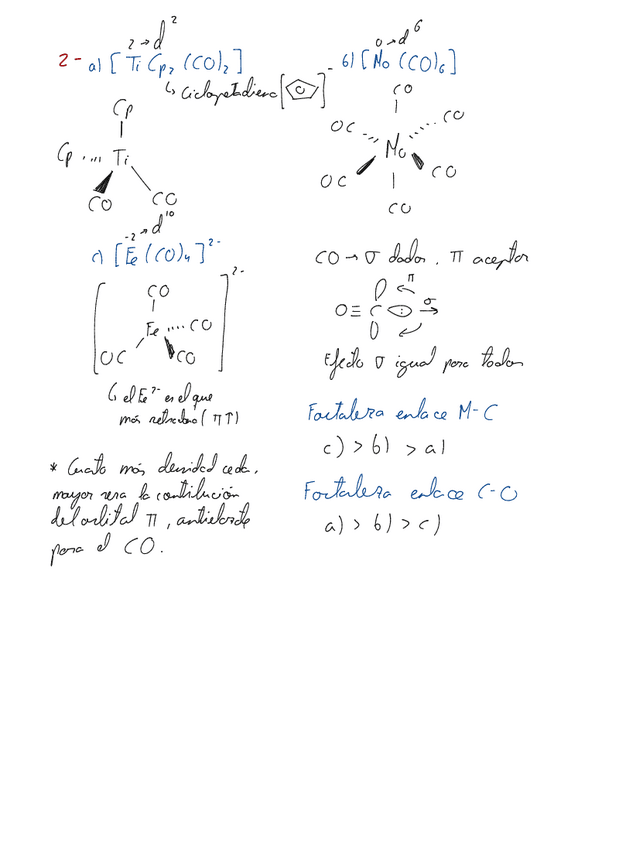 2 → d²
2- a) [Ti Cp₂ (CO)₂]
↳ Ciclopetadieno [ ]⁻
Cp
Cp Ti
CO CO
0 → d⁶
b) [Mo (CO)₆]
CO
OC CO
Mo
OC CO
CO
-2 → d¹⁰
c) [Fe (CO)₄]²⁻
2-
CO
Fe CO
OC CO
↳ el Fe²⁻ es el que
más retrodona (π↑)
* Cuanto más densidad ceda,
mayor sera la contribución
del orbital π, antienlazante
para el CO.
CO → σ dador, π aceptor
π
O≡C : → σ
Efecto σ igual para todos
Fortaleza enlace M-C
c) > b) > a)
Fortaleza enlace C-O
a) > b) > c)